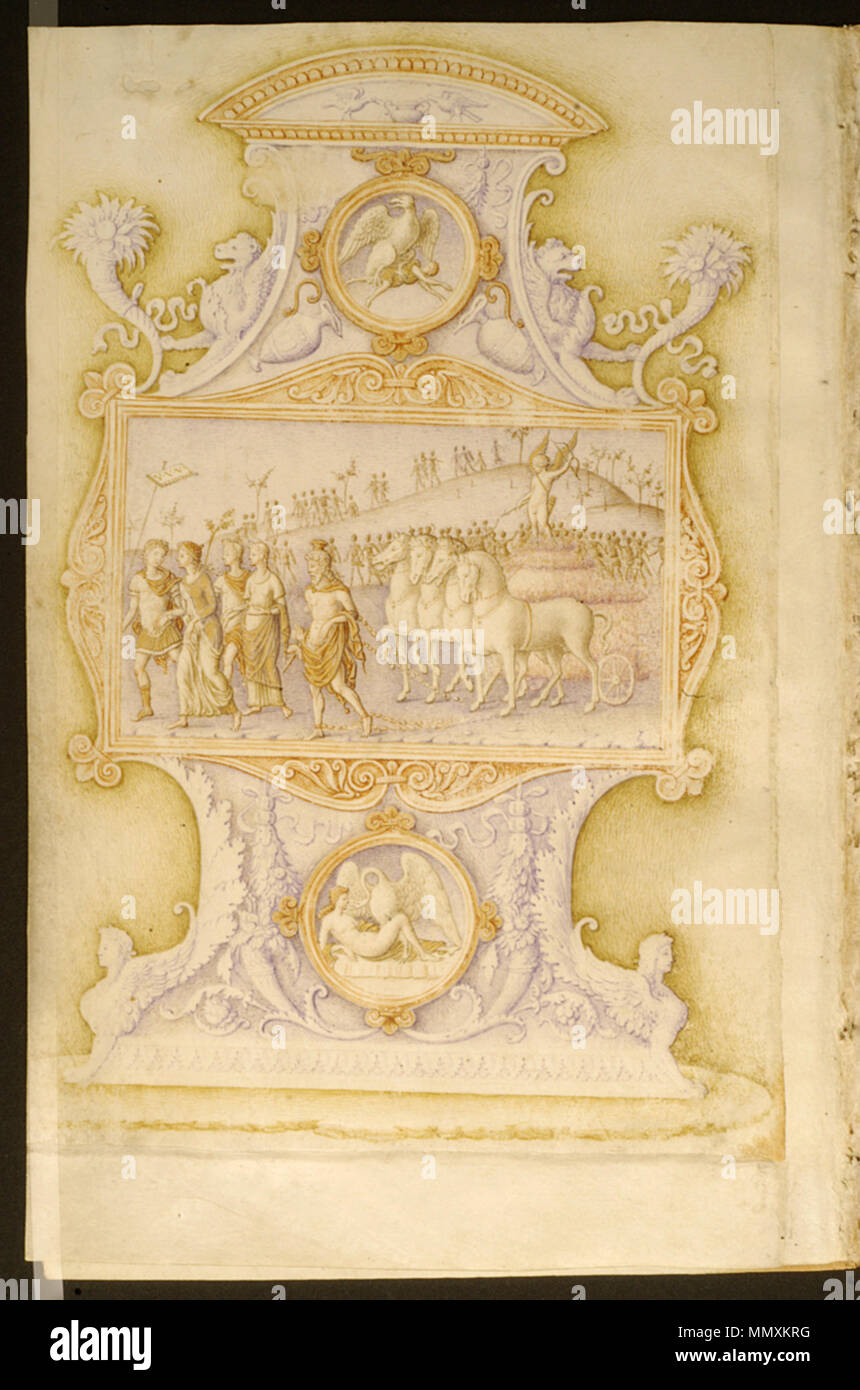 alamy
alamy
alamy
alamy
Image ID: MMXKRG
www.alamy.com